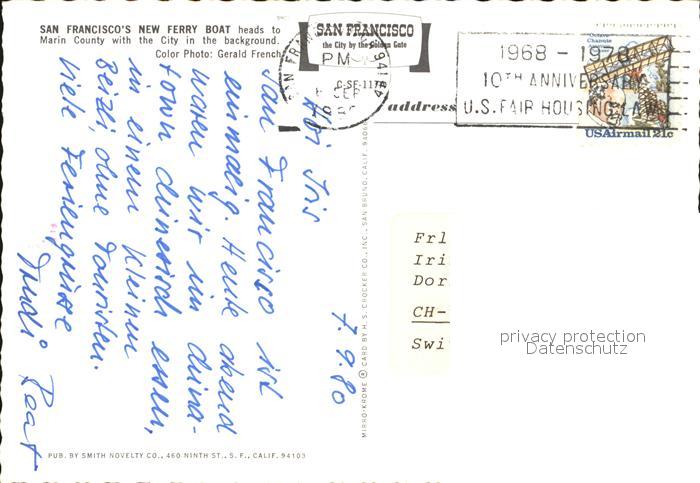 SAN FRANCISCO'S NEW FERRY BOAT heads to
Marin County with the City in the background.
Color Photo: Gerald French
SAN FRANCISCO
the City by the Golden Gate
PM
SEP
1980
94116
address
1968 - 1978
10TH ANNIVERSARY
U.S. FAIR HOUSING LAW
Octave
Chanute
USAirmail 21c
7.9.80
Hoi Iris
San Francisco ist
einmalig. Heute abend
waren wir in China-
town chinesisch essen,
in einem kleinen
Beizli, ohne Touristen.
Viele Feriengrüsse
Trudi Beat
MIRRO-KROME ® CARD BY H. S. CROCKER CO., INC., SAN BRUNO, CALIF. 94066
Frl
Iri
Dor
CH-
Swi
privacy protection
Datenschutz
PUB. BY SMITH NOVELTY CO., 460 NINTH ST., S. F., CALIF. 94103